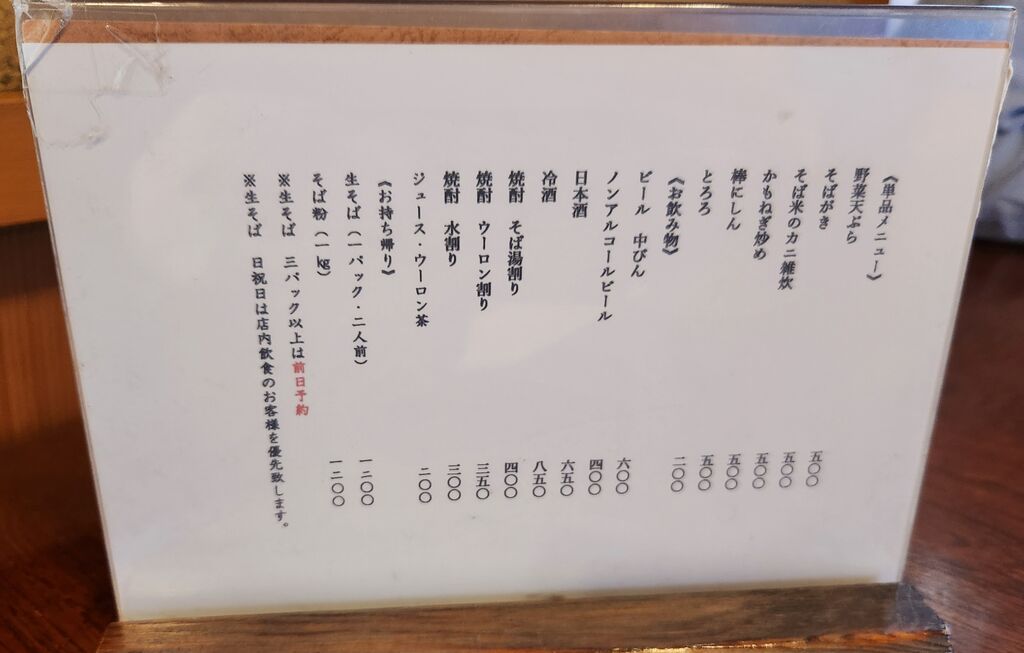 《単品メニュー》
野菜天ぷら 五〇〇
そばがき 五〇〇
そば米のカニ雑炊 五〇〇
かもねぎ炒め 五〇〇
棒にしん 五〇〇
とろろ 二〇〇
《お飲み物》
ビール 中びん 六〇〇
ノンアルコールビール 四〇〇
日本酒 六五〇
冷酒 八五〇
焼酎 そば湯割り 四〇〇
焼酎 ウーロン割り 三五〇
焼酎 水割り 三〇〇
ジュース・ウーロン茶 二〇〇
《お持ち帰り》
生そば(一パック・二人前) 一二〇〇
そば粉(一㎏) 一二〇〇
※生そば 三パック以上は前日予約
※生そば 日祝日は店内飲食のお客様を優先致します。